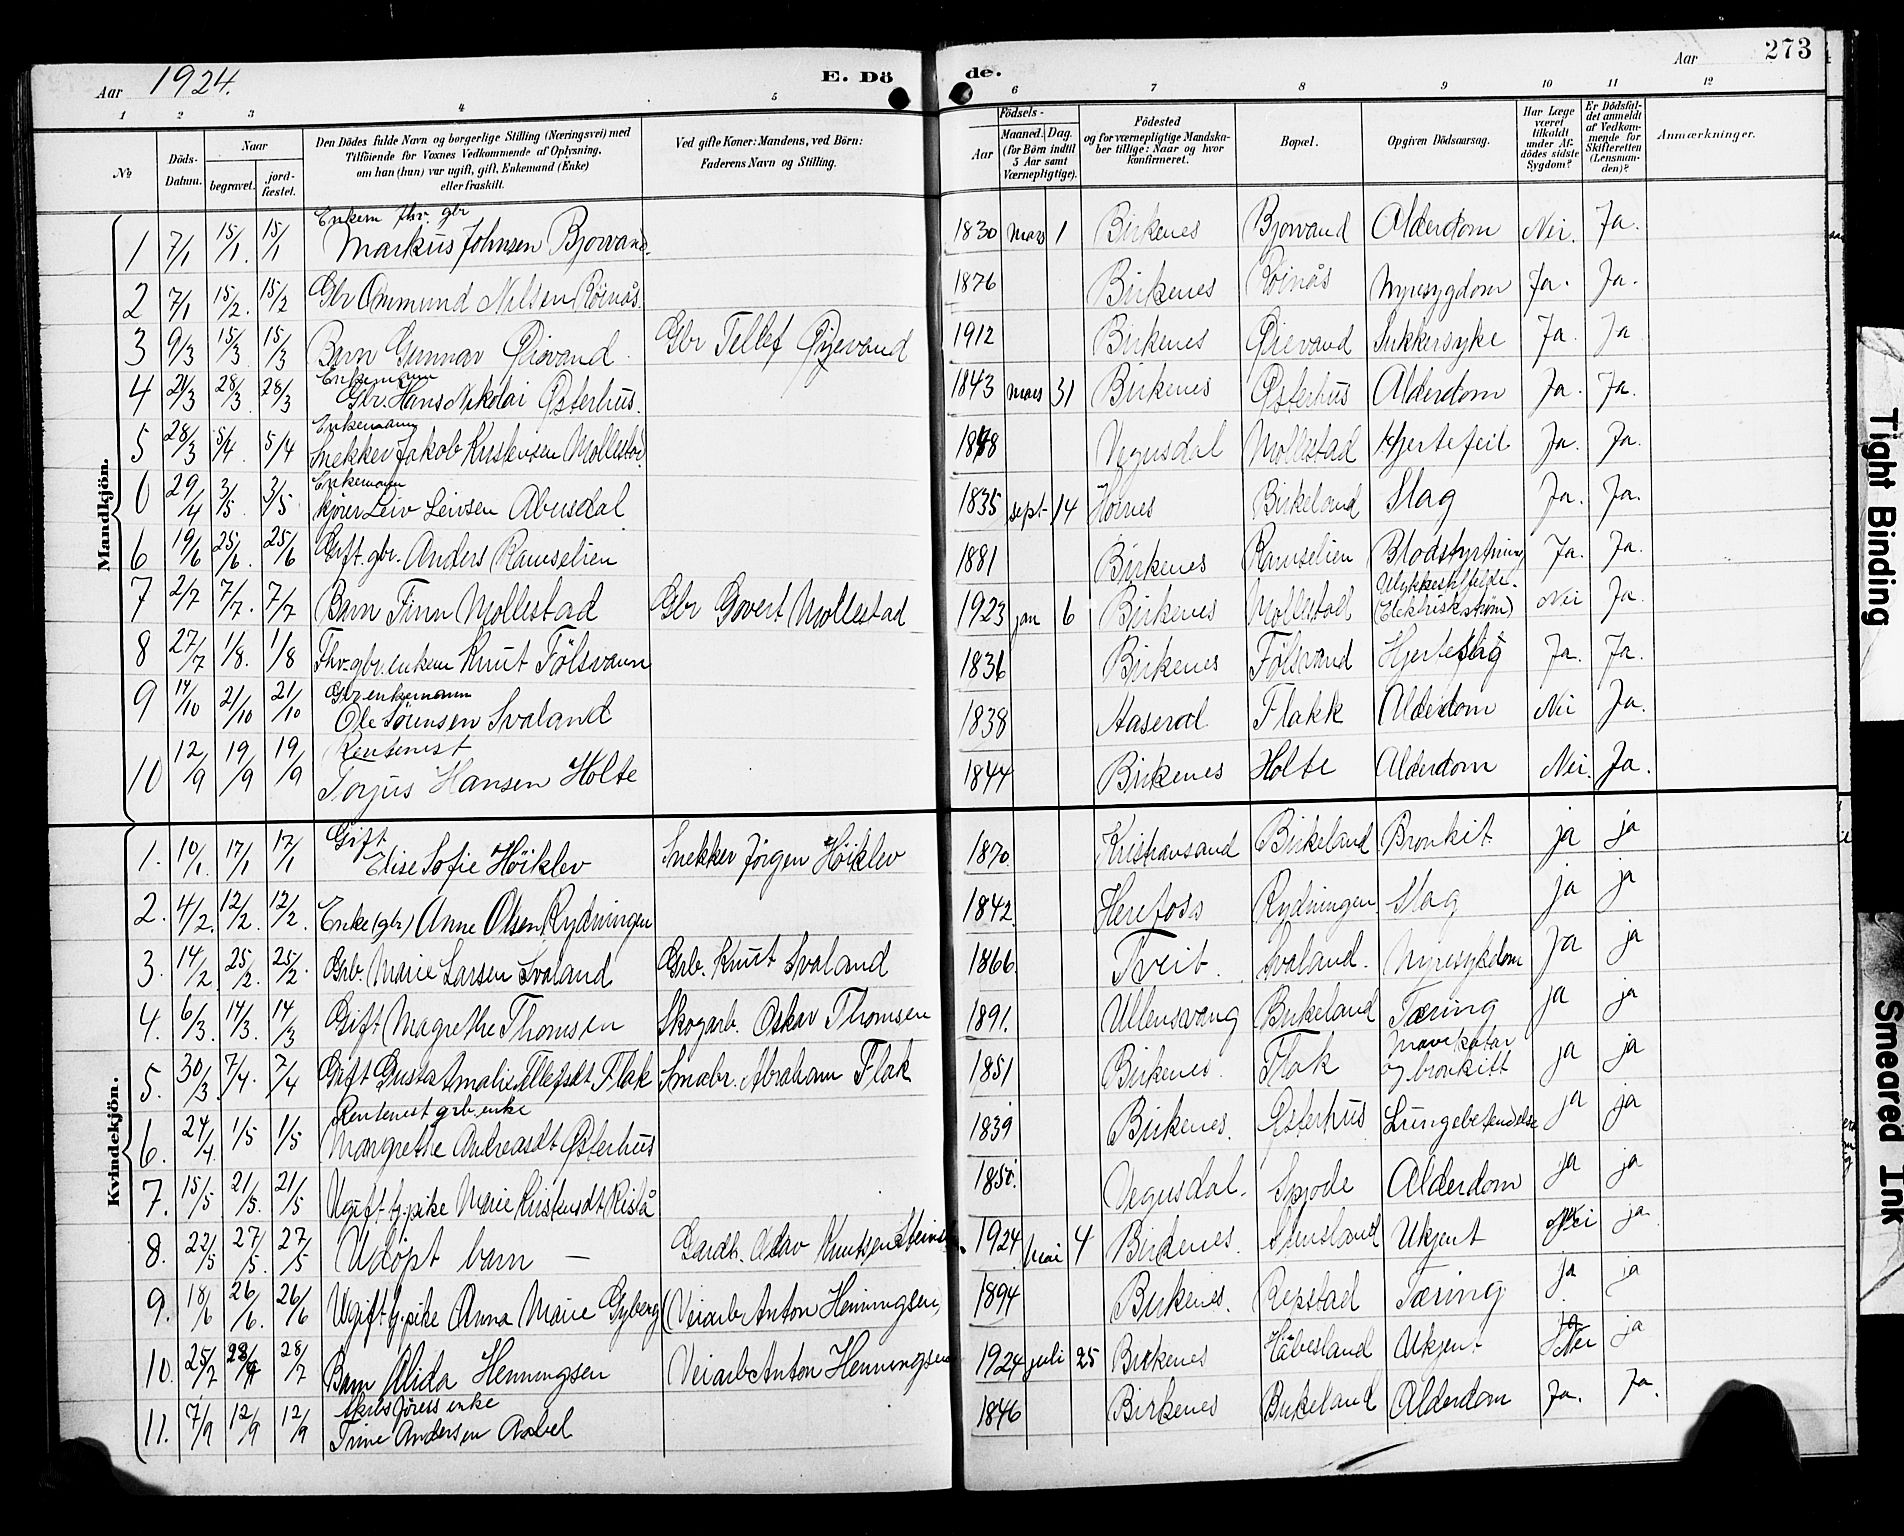 Aar 1924. E. Dö de. Aar 273
1 2 3 4 5 6 7 8 9 10 11 12
№
Döds-Datum.
Naar
begravet.
jordfæstet.
Den Dödes fulde Navn og borgerlige Stilling (Næringsvei) med
Tilföiende for Voxnes Vedkommende af Oplysning,
om han (hun) var ugift, gift, Enkemand (Enke)
eller fraskilt.
Ved gifte Koner: Mandens, ved Börn:
Faderens Navn og Stilling.
Födsels-
Aar
Maaned. Dag.
(for Börn indtil
5 Aar samt
Værnepligtige).
Födested
og for værnepligtige Mandskaber tillige: Naar og hvor
konfirmeret.
Bopæl.
Opgiven Dödsaarsag.
Har Læge
været
tilkaldt
under Afdödes sidste
Sygdom?
Er Dödsfaldet anmeldt
af Vedkommende for
Skifteretten
(Lensmanden)?
Anmærkninger.
Mandkjön.
Enkem fhv. gbr
1 7/1 15/1. 15/1 Markus Johnsen Bjorvand. 1830 mars 1 Birkenes Bjorvand Alderdom Nei. Ja.
2 7/1 15/2. 15/2 Gbr Ommund Nilsen Röinås. 1876 Birkenes Röinås Nyresygdom Ja. Ja.
3 9/3 15/3 15/3 Barn Gunnar Øievand Gbr Tellef Øyevand 1912 Birkenes Øievand Sukkersyke Ja. Ja
Enkemann
4 21/3 28/3 28/3 Gbr. Hans Nikolai Østerhus. 1843 mars 31 Birkenes Østerhus Alderdom Ja. Ja.
Enkemann
5 28/3 5/4 5/4 Snekker Jakob Kristensen Mollestad. Vegusdal Mollestad Hjertefeil Ja. Ja.
Enkemann
29/4 3/5 3/5 Leiv Leivsen Abusdal 1835 sept 14 Birkeland Slag Ja. Ja.
6 19/6 25/6. 25/6 Gift. gbr. Anders Ramselien 1881 Birkenes Ramselien Blodstyrtning Ja. Ja.
7 2/7 7/7. 7/7 Barn Finn Mollestad Gbr Govert Mollestad 1923 jan 6 Birkenes Mollestad Ulykkestilfelde. (Elektrisk strøm) Nei Ja.
8 27/7 1/8. 1/8 Fhv. gbr. enkem Knut Fölsvann 1836 Birkenes Fölsvand Hjerteslag Ja. Ja.
Gbr enkemann
9 14/10 21/10 21/10 Ole Sörensen Svaland 1838 Aaseral Flakk Alderdom Nei Ja.
Rentenist
10 12/9 19/9 19/9 Torjus Hansen Holte 1844 Birkenes Holte Alderdom Nei. Ja.
Kvindekjön.
Gift
1. 10/1. 17/1 17/1 Elise Sofie Höiklev Snekker Jörgen Höiklev 1870. Kristiansand Birkeland Bronkit. ja ja
2. 4/2. 12/2. 12/2. Enke (gbr) Anne Olsen Rydningen 1842. Herefoss Rydningen. Slag ja ja
3. 14/2 25/2. 25/2. Grb. Marie Larsen Svaland Grb. Knut Svaland 1866. Tveit. Svaland. Nyresykdom Ja ja
4. 6/3. 14/3. 14/3 Gift Magrethe Thomsen Skogarb. Oskar Thomsen 1891. Ullensvang Birkeland Tæring ja ja
5. 30/3. 7/4. 7/4 Gift Gusta Amalie Tellefsdt Flak Smabr. Abraham Flak 1851 Birkenes. Flak Mavekatar og bronkitt ja ja
Rentenest grb. enke
6. 24/4 1/5 1/5 Margrethe Andreasdt Østerhus 1839 Birkenes. Østerhus Lungebetendelse ja ja
7. 15/5 21/5. 21/5 Ugift tj.pike Marie Kristensdt Ristå 1850. Vegusdal. Alderdom ja ja
8. 22/5 27/5. 27/5 Udöpt barn — Gardb. Olav Knutsen 1924 mai 4 Birkenes. Ukjent Nei ja
9. 18/6 26/6. 26/6 Ugift tj.pike Anna Marie Gyberg (Veiarb Anton Henningsen) 1894 Birkenes. Repstad Tæring ja ja
10. 25/7 28/7 Barn Alida Henningsen Veiarb Anton Henningsen 1924 juli 25 Birkenes Håbesland Ukjent Nei ja
enke
11. 7/9 12/9 12/9 Trine Andersen 1846 Birkenes Birkeland Alderdom Ja. Ja.
Tight Binding
Smeared Ink